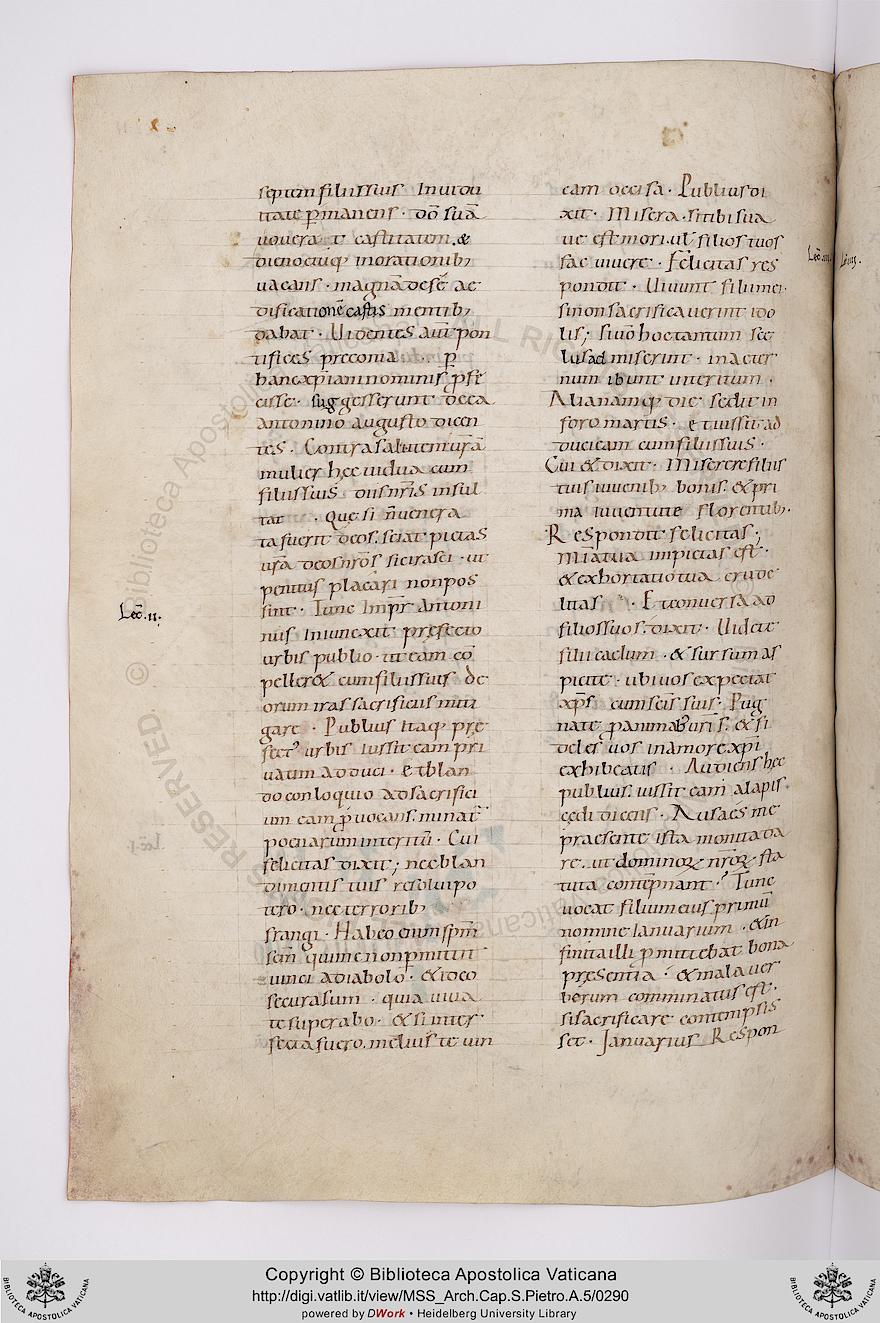 septem filiis suis In uidu
itate p̄manens · dō suā
uouerat castitatem · &
die noctuq; in orationib;
uacans · magnā de se ae
dificationē castis mentib;
dabat · Uidentes aut̄ pon
tifices preconia p̄
hanc xp̄iani nominis p̄fe
cisse · suggesserunt de ea
antonino augusto dicen
tes · Contra salutem urā
mulier hec uidua cum
filiis suis diis nr̄is insul
tat · Que si n̄ uenera
ta fuerit deos · sciat pietas
urā deos nr̄os sic irasci · ut
penitus placari non pos
sint · Tunc Imp̄r Antoni
nus Iniunexit pręfecto
urbis publio · ut eam cō
peller& cum filiis suis de
orum iras sacrificiis miti
gare · Publius itaq; pre
fect' urbis iussit eam pri
uatim adduci · et blan
do conloquio ad sacrifici
um eam p̄uocans · minat̄
poenarum interitū · Cui
felicitas dixit ; nec blan
dimentis tuis resolui po
tero · nec terrorib;
frangi · Habeo enim sp̄m
sc̄m qui me non p̄mittit
uinci a diabolo · & ideo
secura sum · quia uiua
te superabo · & si inter
fecta fuero · melius te uin
cam occisa · Publius di
xit · Misera · si tibi sua
ue est mori · ul̄ filios tuos
fac uiuere · Felicitas res
pondit · Uiuunt filii mei ·
si non sacrificauerint ido
lis ; si uō hoc tantum sce
lus admiserint · in aeter
num ibunt interitum ·
Alia namq; die sedit in
foro martis · et iussit ad
duci eam cum filiis suis ·
Cui & dixit · Miserere filiis
tuis iuuenib; bonis · & pri
ma iuuentute florentib; ·
Respondit felicitas ;
Mi a tua impietas est ·
& exhortatio tua crude
litas · Et conuersa ad
filios suos · dixit · Uidete
filii caelum · & sursum as
picite · ubi uos expectat
xp̄s cum sc̄is suis · Pug
nate p̄ animab; uris · & fi
deles uos in amore xp̄i
exhibeatis · Audiens hec
publius · iussit eam alapis
cedi dicens · Ausa es me
praesente ista monita da
re · ut dominoꝝ nr̄oꝝ sta
tuta contēpnant · Tunc
uocat filium eius primū
nomine Ianuarium · & in
finita illi p̄mittebat bona
pręsentia · & mala uer
berum comminatus est ·
si sacrificare contempsis
set · Januarius Respon
Lec̄ · ii ·
Lec̄ · iii ·